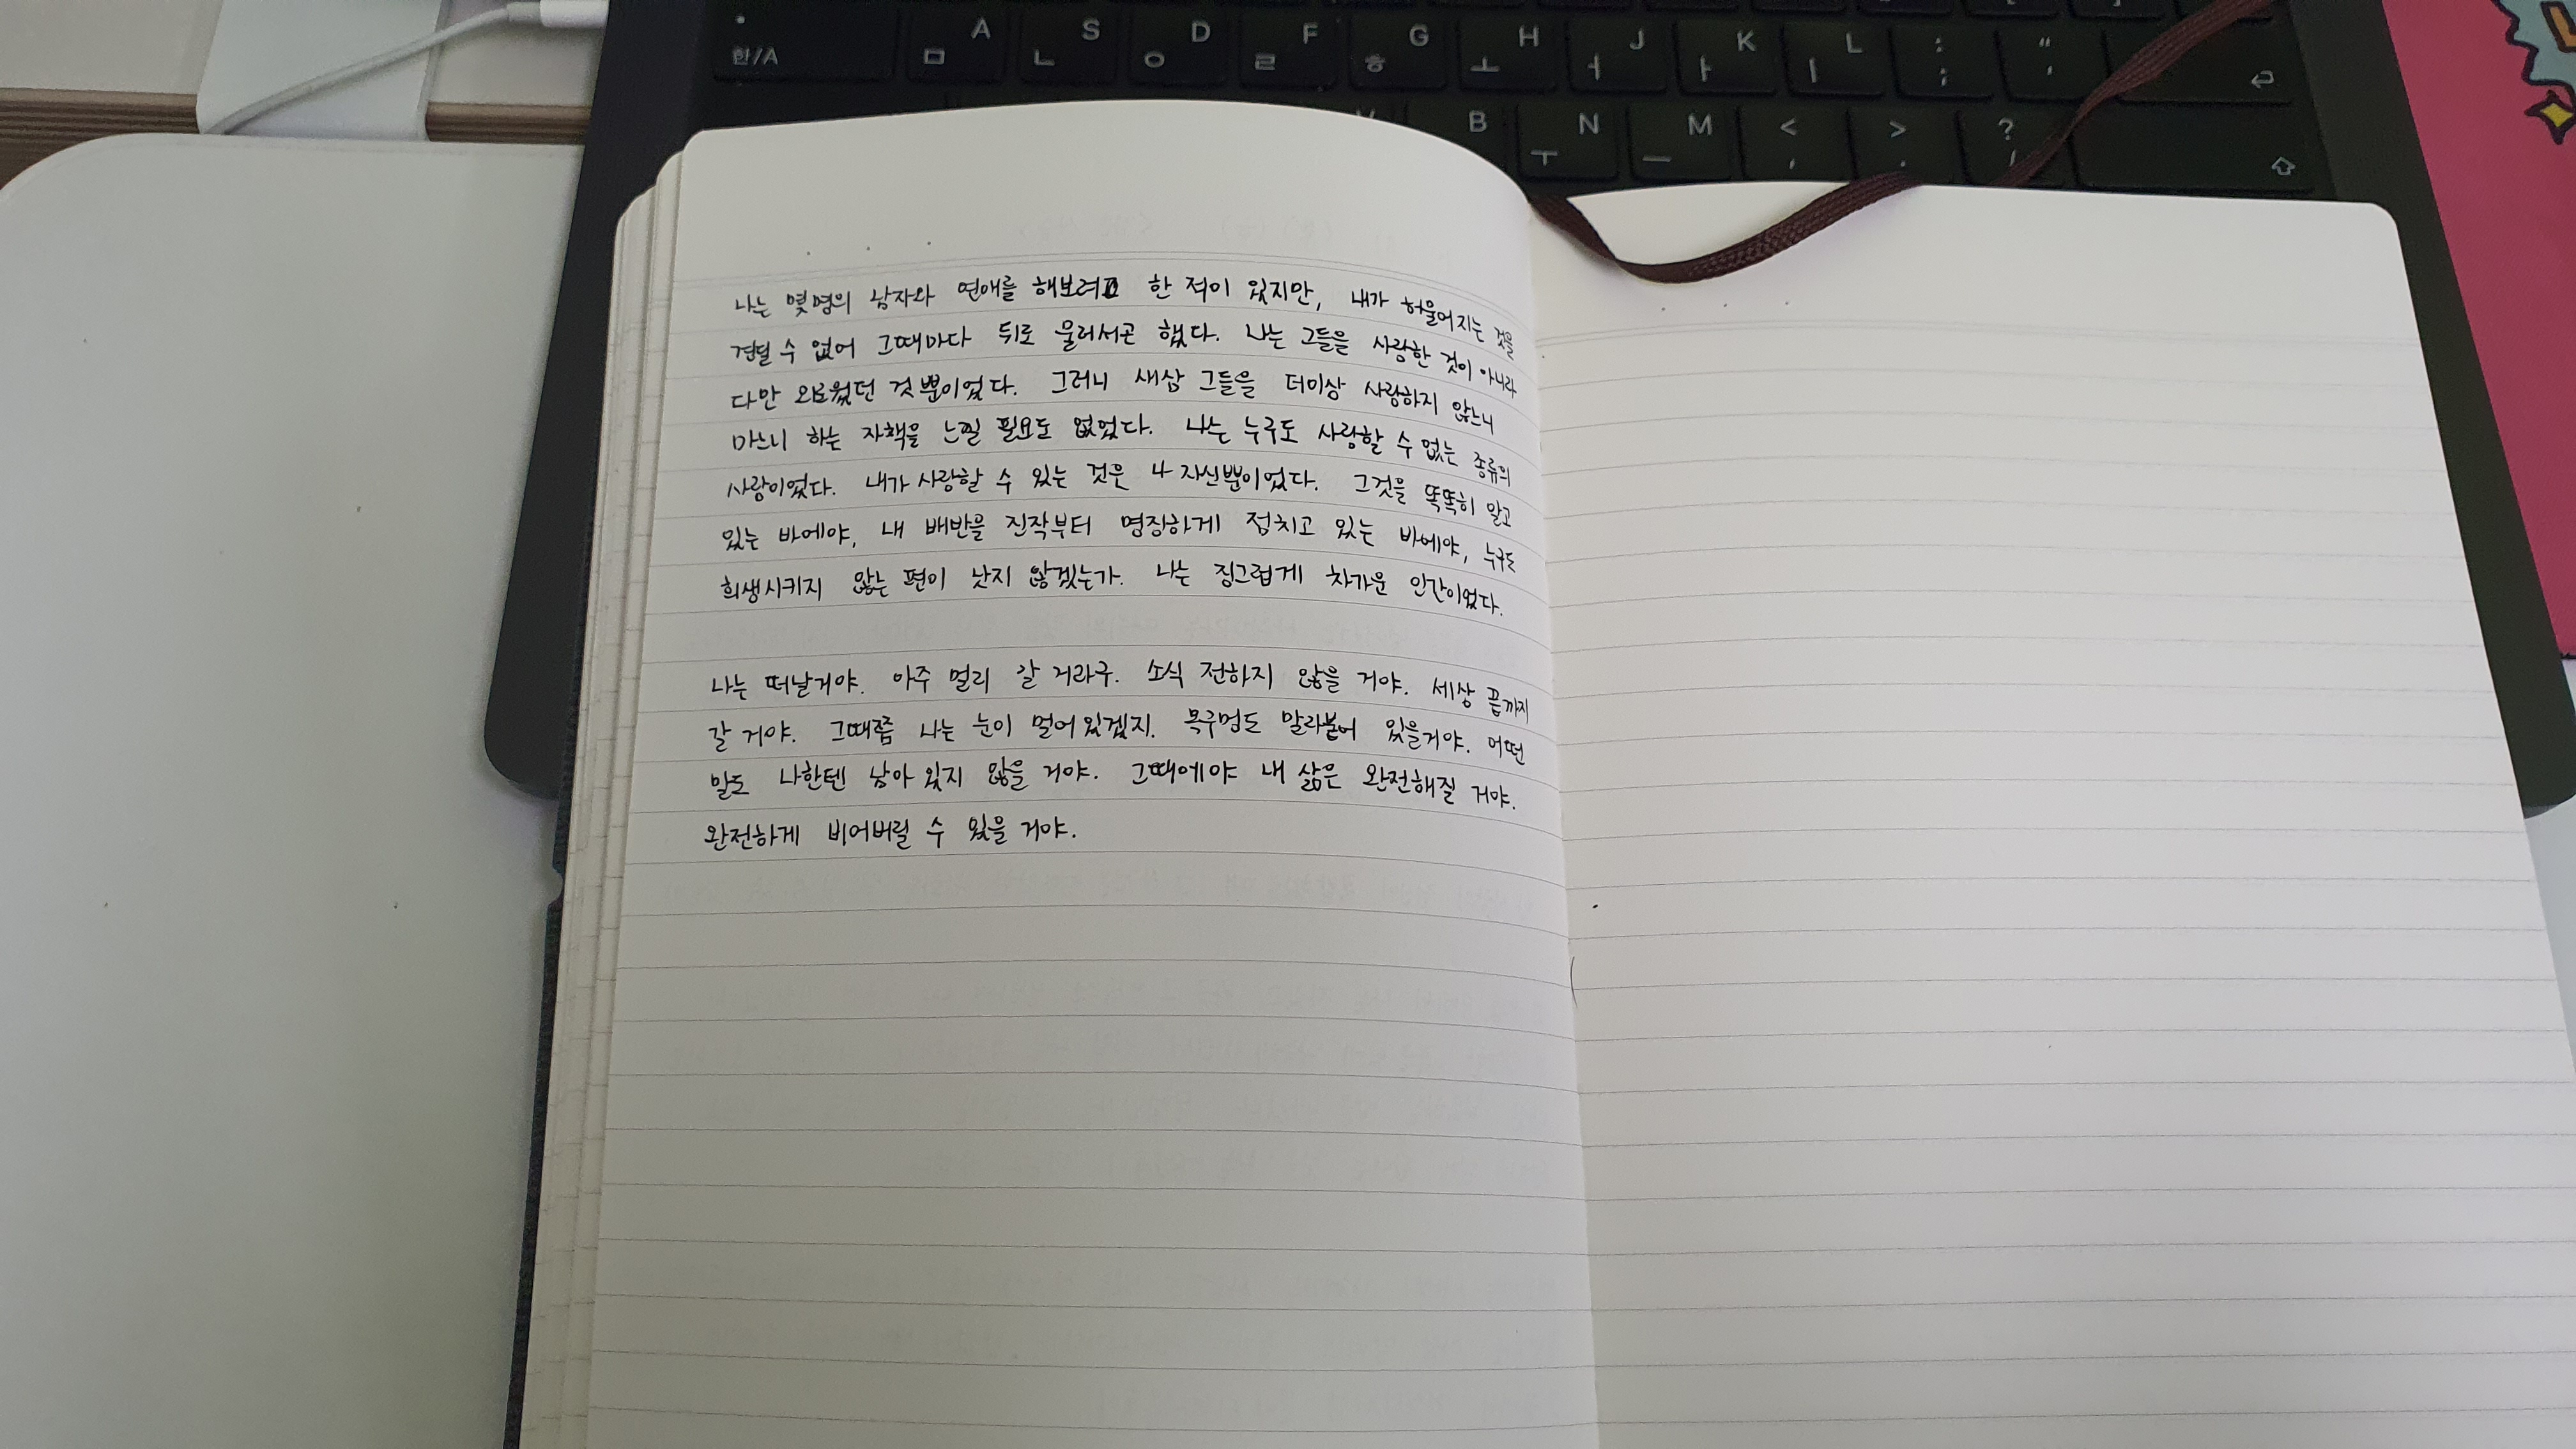 한/A A ㅁ S ㄴ D ㅇ F ㄹ G ㅎ H ㅗ J ㅓ K ㅏ L ㅣ : ; " '
B N ㅜ M ㅡ < , > . ? /
나는 몇명의 남자와 연애를 해보려고 한 적이 있지만, 내가 허물어지는 것을
견딜 수 없어 그때마다 뒤로 물러서곤 했다. 나는 그들을 사랑한 것이 아니라
다만 외로웠던 것 뿐이었다. 그러니 새삼 그들을 더이상 사랑하지 않느니
마느니 하는 자책을 느낄 필요도 없었다. 나는 누구도 사랑할 수 없는 종류의
사람이었다. 내가 사랑할 수 있는 것은 나 자신뿐이었다. 그것을 똑똑히 알고
있는 바에야, 내 배반을 진작부터 명징하게 점치고 있는 바에야, 누구도
희생시키지 않는 편이 낫지 않겠는가. 나는 징그럽게 차가운 인간이었다.
나는 떠날거야. 아주 멀리 갈 거라구. 소식 전하지 않을 거야. 세상 끝까지
갈 거야. 그때쯤 나는 눈이 멀어있겠지. 목구멍도 말라붙어 있을거야. 어떤
말도 나한텐 남아 있지 않을 거야. 그때에야 내 삶은 완전해질 거야.
완전하게 비어버릴 수 있을 거야.